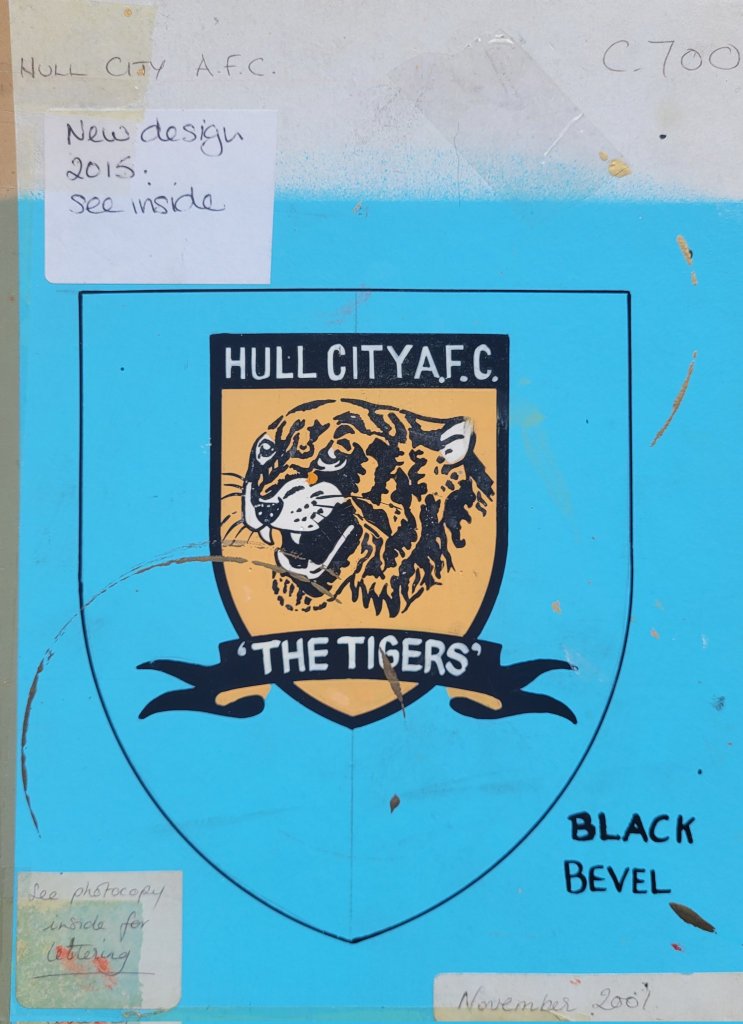 HULL CITY A.F.C.
C.700
New design
2015.
see inside
HULL CITY A.F.C.
‘THE TIGERS’
BLACK
BEVEL
See photocopy
inside for
lettering
November 2001